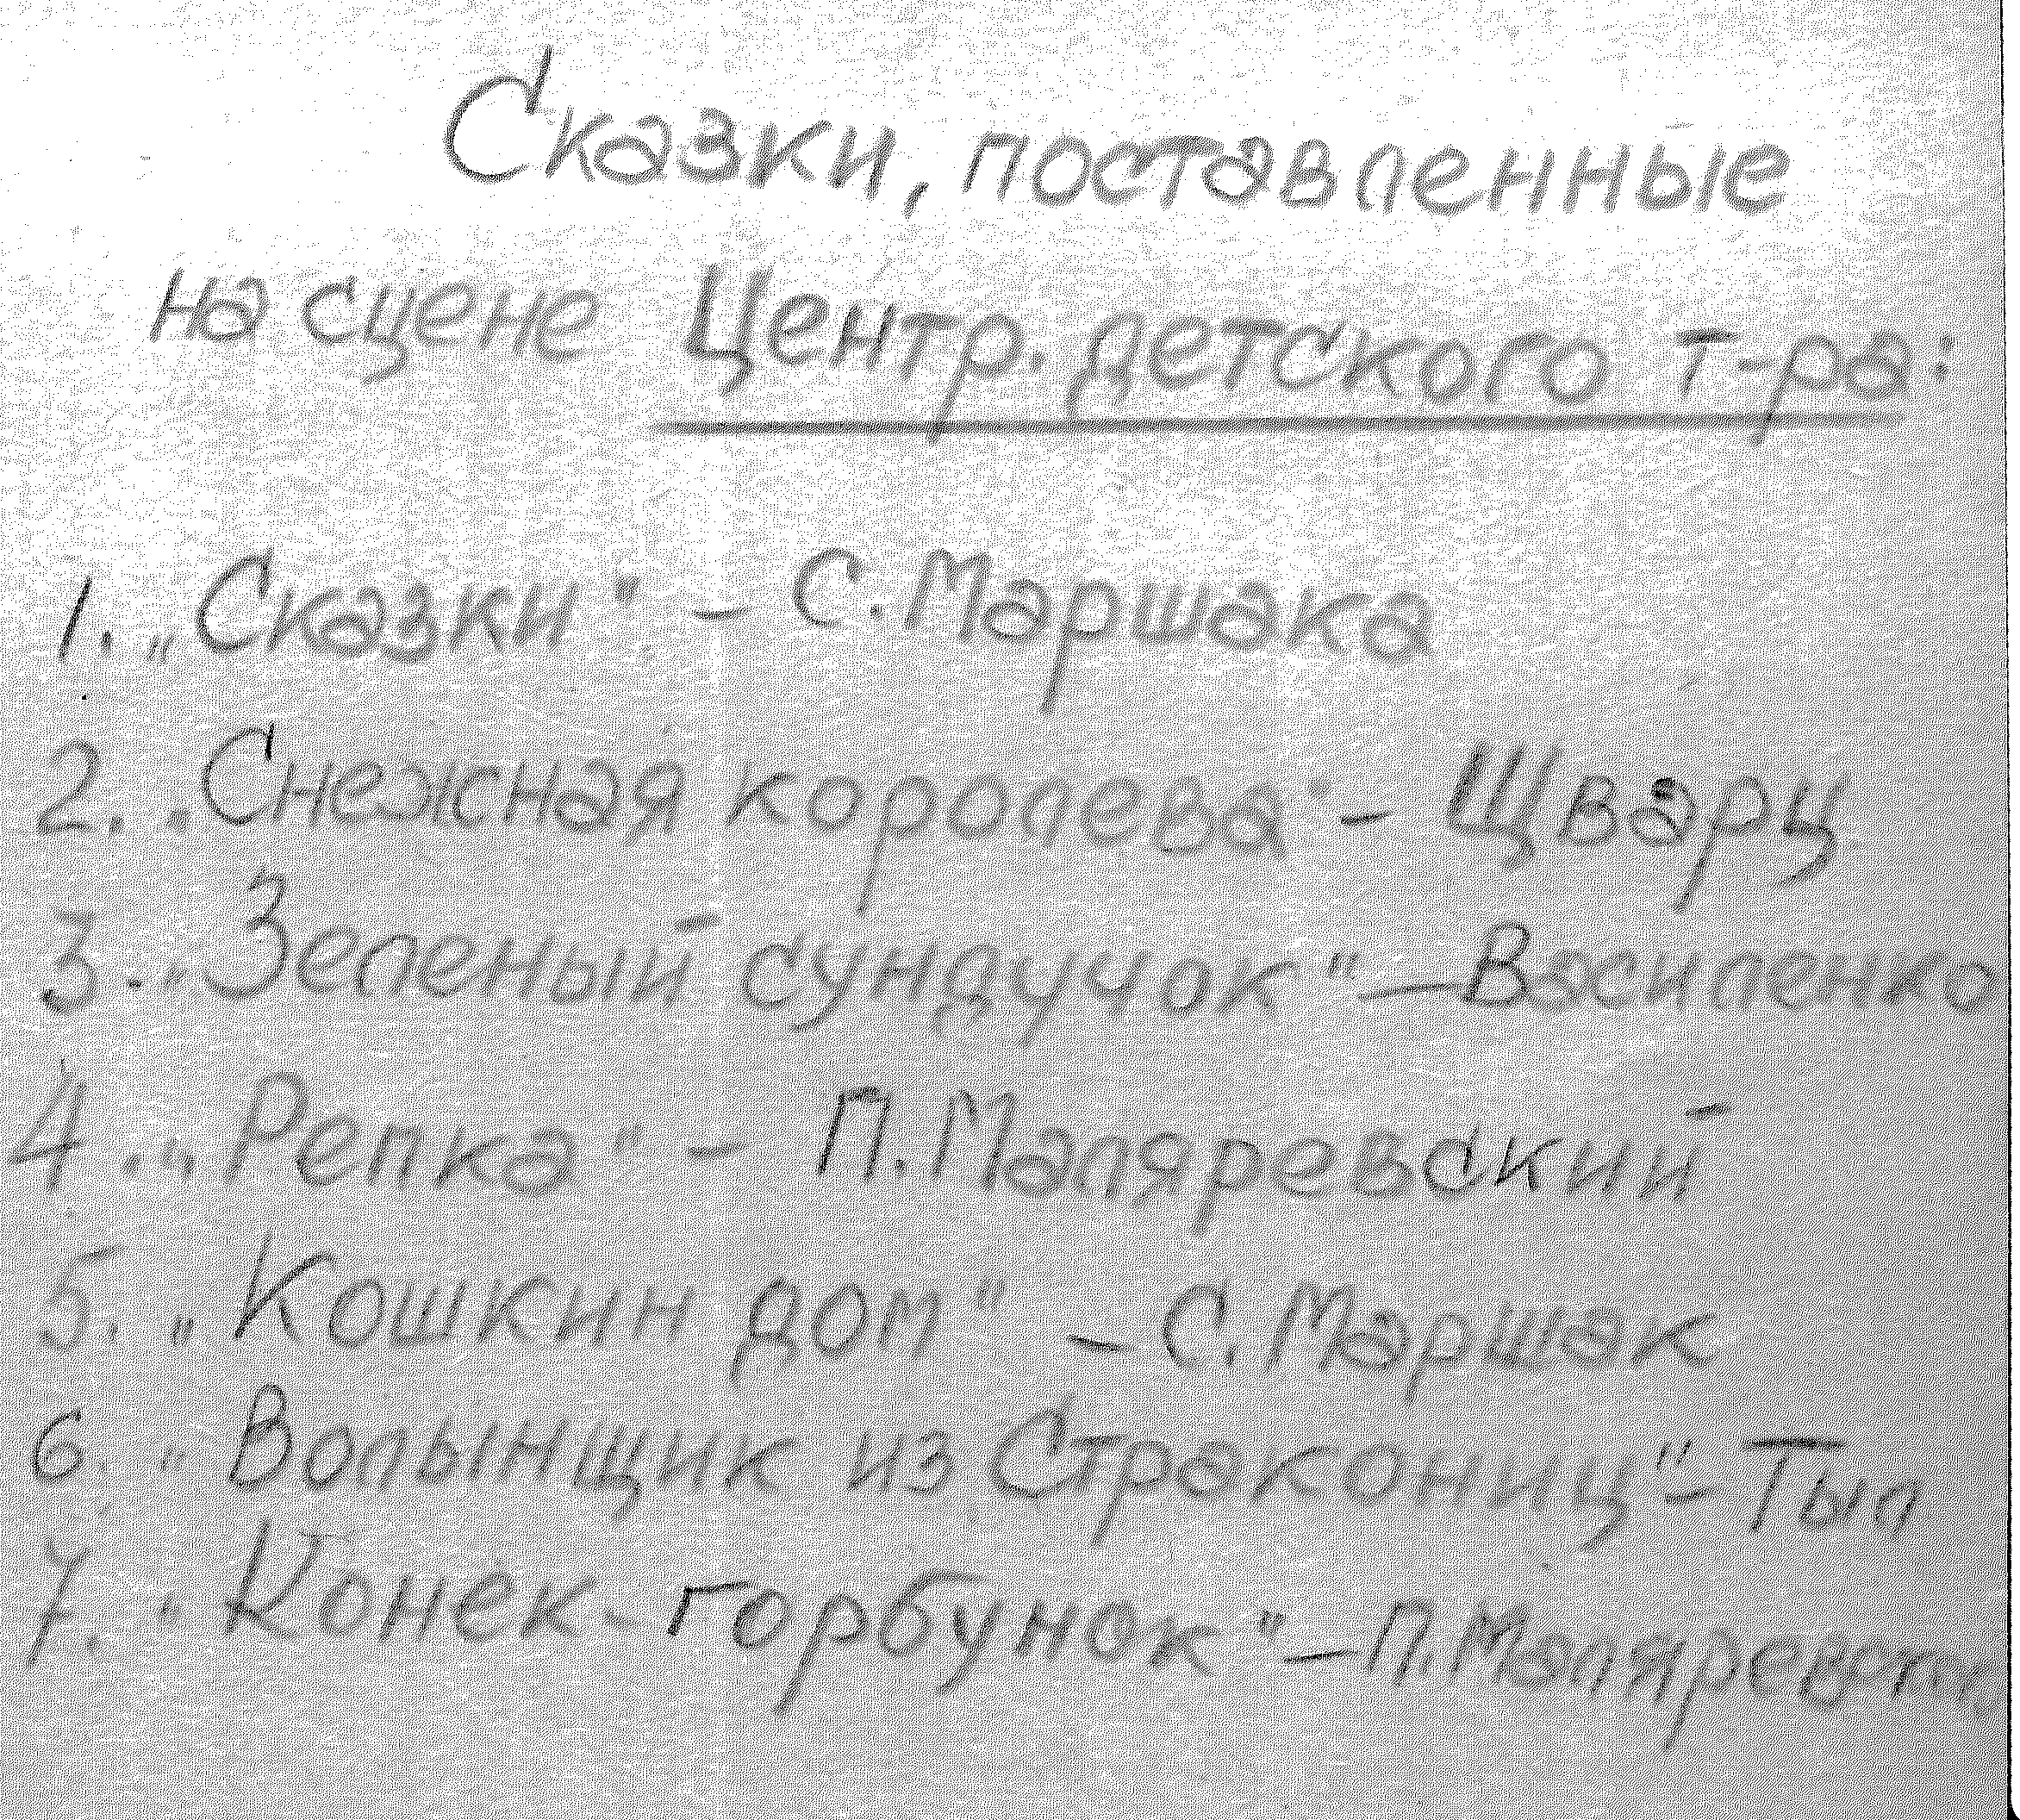 Сказки, поставленные
на сцене Центр. детского т-ра:
1. „Сказки" – С. Маршака
2. „Снежная королева" – Щварц
3. „Зеленый сундучок" – Василенко
4. „Репка" – П. Маляревский
5. „Кошкин дом" – С. Маршак
6. „Волынщик из Стракониц" – Тыл
7. „Конек-горбунок" – П.